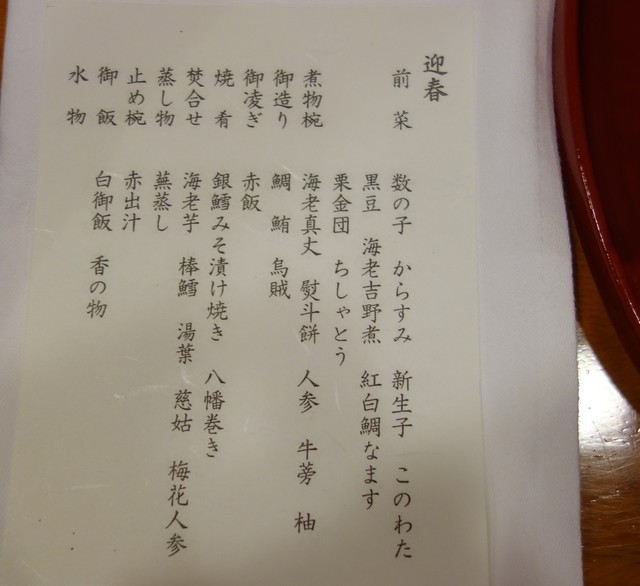 迎春
前菜 数の子 からすみ 新生子 このわた
黒豆 海老吉野煮 紅白鯛なます
栗金団 ちしゃとう
煮物椀 海老真丈 熨斗餅 人参 牛蒡 柚
御造り 鯛 鮪 烏賊
御凌ぎ 赤飯
焼肴 銀鱈みそ漬け焼き 八幡巻き
焚合せ 海老芋 棒鱈 湯葉 慈姑 梅花人参
蒸し物 蕪蒸し
止め椀 赤出汁
御飯 白御飯 香の物
水物